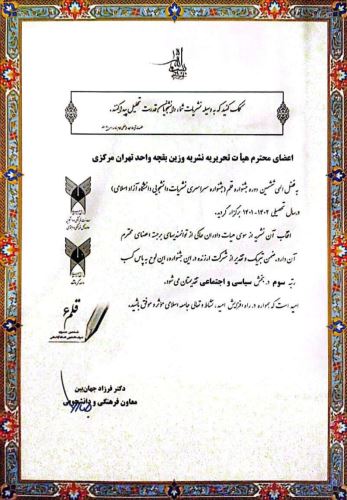 کمک کنید که به وسیله نشریات شما، در دانشجویان قدرت تحلیل پیدا کنند.
اعضای محترم هیأت تحریریه نشریه وزین بقچه واحد تهران مرکزی
به فضل الهی ششمین دوره جشنواره قلم (جشنواره سراسری نشریات دانشجویی دانشگاه آزاد اسلامی)
در سال تحصیلی ۱۴۰۲-۱۴۰۱ برگزار گردید.
انتخاب آن نشریه از سوی هیات داوران حاکی از توانمندیهای برجسته اعضای محترم
آن دارد، ضمن تبریک و تقدیر از شرکت ارزنده در این جشنواره، این لوح به پاس کسب
رتبه سوم در بخش سیاسی و اجتماعی تقدیمتان می شود.
امید است که همواره در راه افزایش امید، نشاط و تعالی جامعه اسلامی موثر و موفق باشید.
قلم ۶
دکتر فرزاد جهان‌بین
معاون فرهنگی و دانشجویی